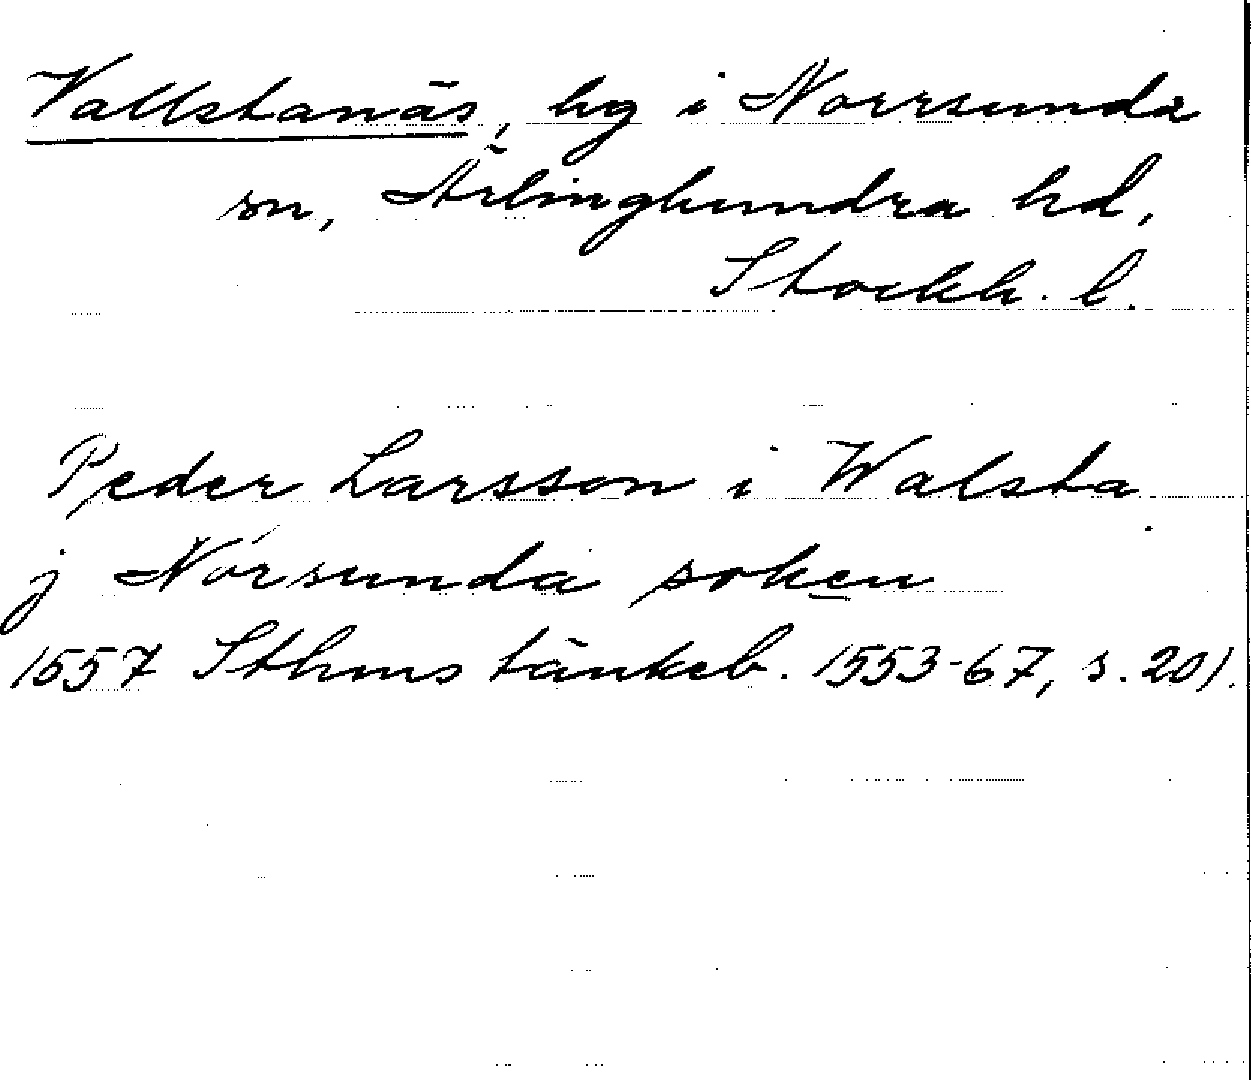 Vallstanäs, hg i Norrsunda
sn, Ärlinghundra hd,
Stockh. l.
Peder Larsson i Walsta
j Nórsunda soken
1557 Sthms tänkeb. 1553-67, s. 201.